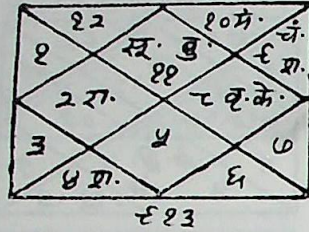 १२
१०मं.
चं.
१
सू. बु.
९
११
२ रा.
८ वृ. के.
३
५
७
४
६
९१३